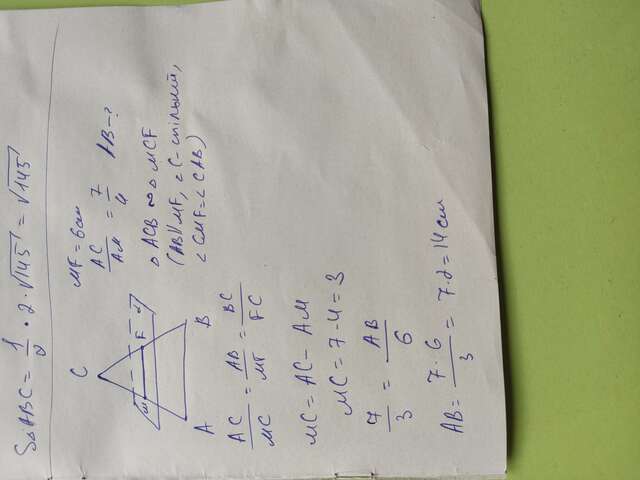 S△ABC = 1/2 · 2 · √145 = √145
MF = 6см
AC/AM = 7/4 AB - ?
C
M F α
A B
△ ACB ∾ △ MCF
(AB∥MF, ∠C - спільний,
∠CMF = ∠CAB)
AC/MC = AB/MF = BC/FC
MC = AC - AM
MC = 7 - 4 = 3
7/3 = AB/6
AB = 7·6/3 = 7·2 = 14 см